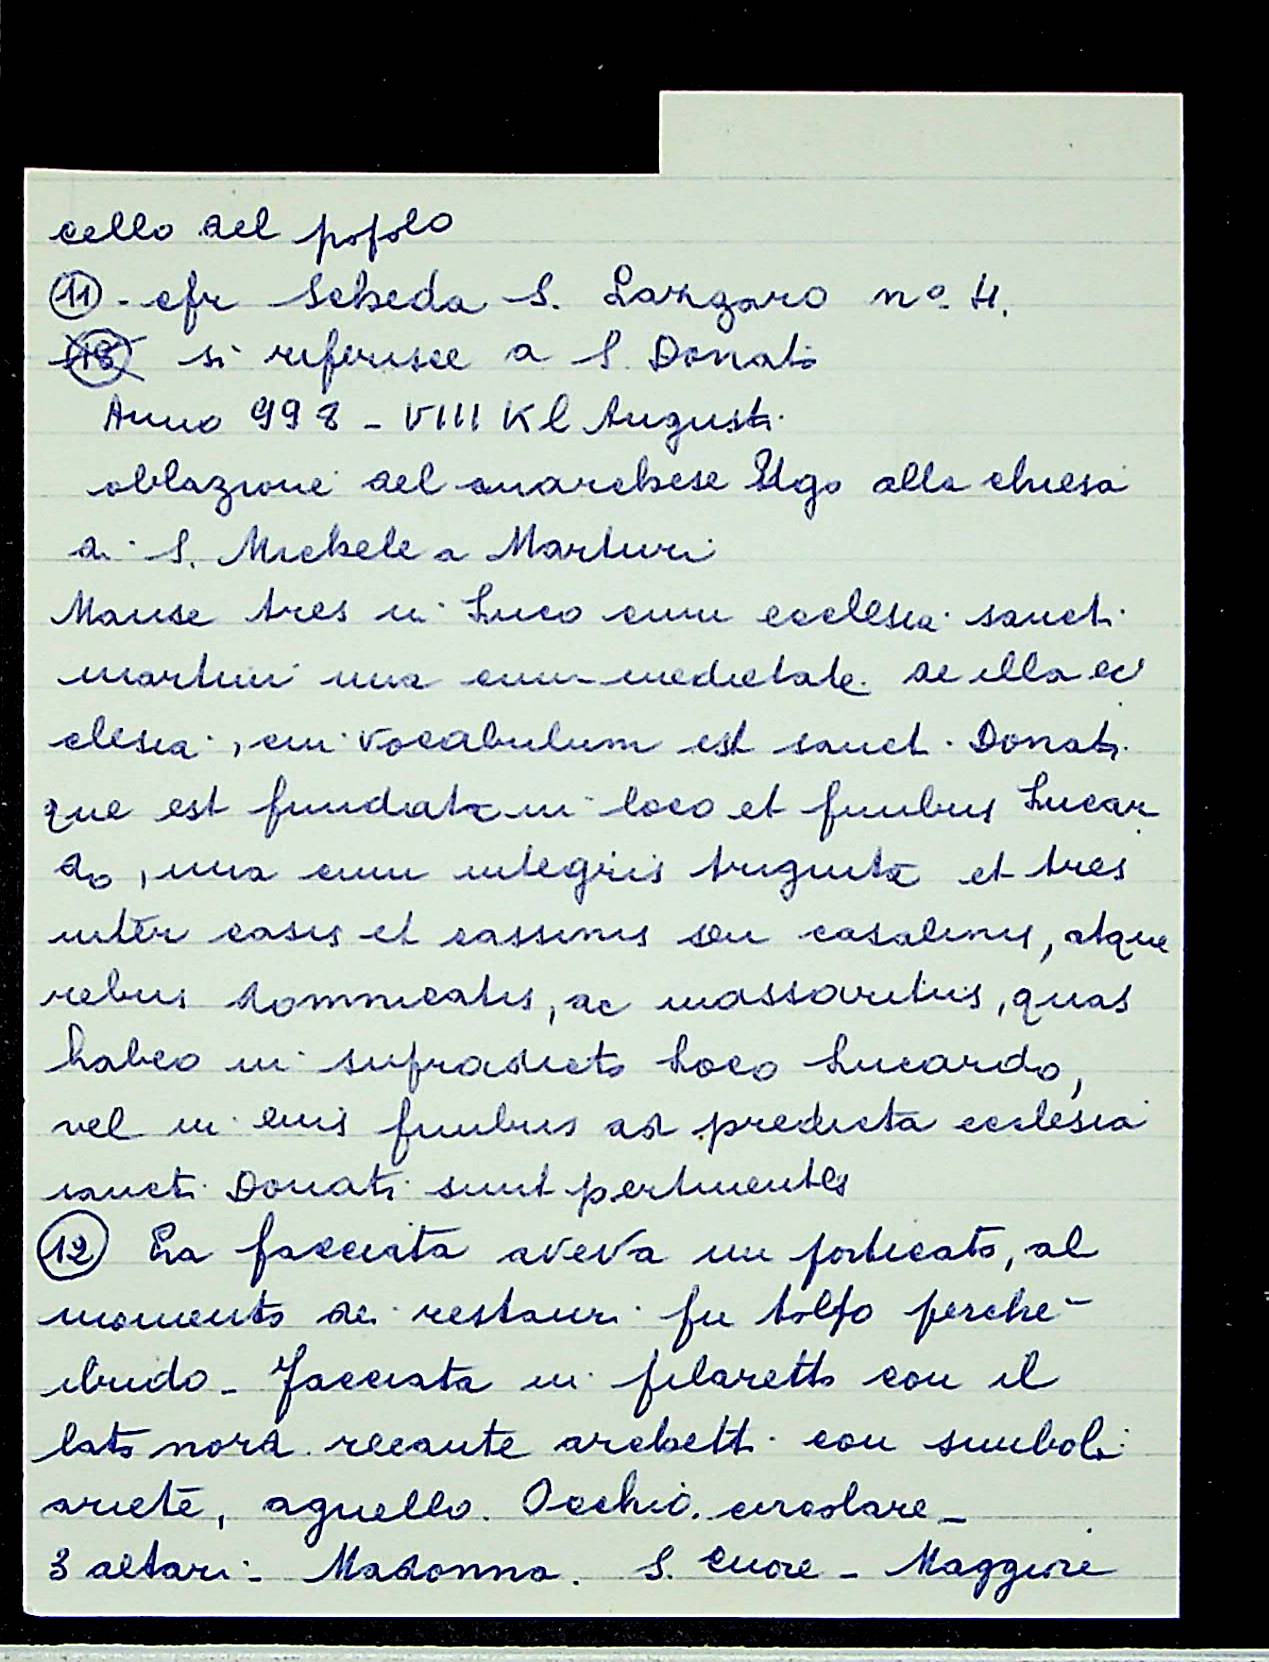 cello del popolo
11 - cfr Scheda S. Lazzaro n° 4.
si riferisce a S. Donato
Anno 998 - VIII Kl Augusti
oblazione del marchese Ugo alla chiesa
di S. Michele a Marturi
Manse tres in Luco cum ecclesia sancti
martini una cum medietate de illa ec
clesia, cui vocabulum est sancti Donati
que est fundata in loco et finibus Lucar
do, una cum integris triginta et tres
inter casis et cassinis seu casalinis, atque
rebus domnicatis, ac massaritiis, quas
habeo in supradicto Loco Lucardo,
vel in eius finibus ad predicta ecclesia
sancti Donati sunt pertinentes
12 La facciata aveva un porticato, al
momento dei restauri fu tolto perchè
ibrido - Facciata in filaretto con il
lato nord recante archetti con simboli
ariete, agnello. Occhio circolare -
3 altari - Madonna. S. Cuore - Maggiore